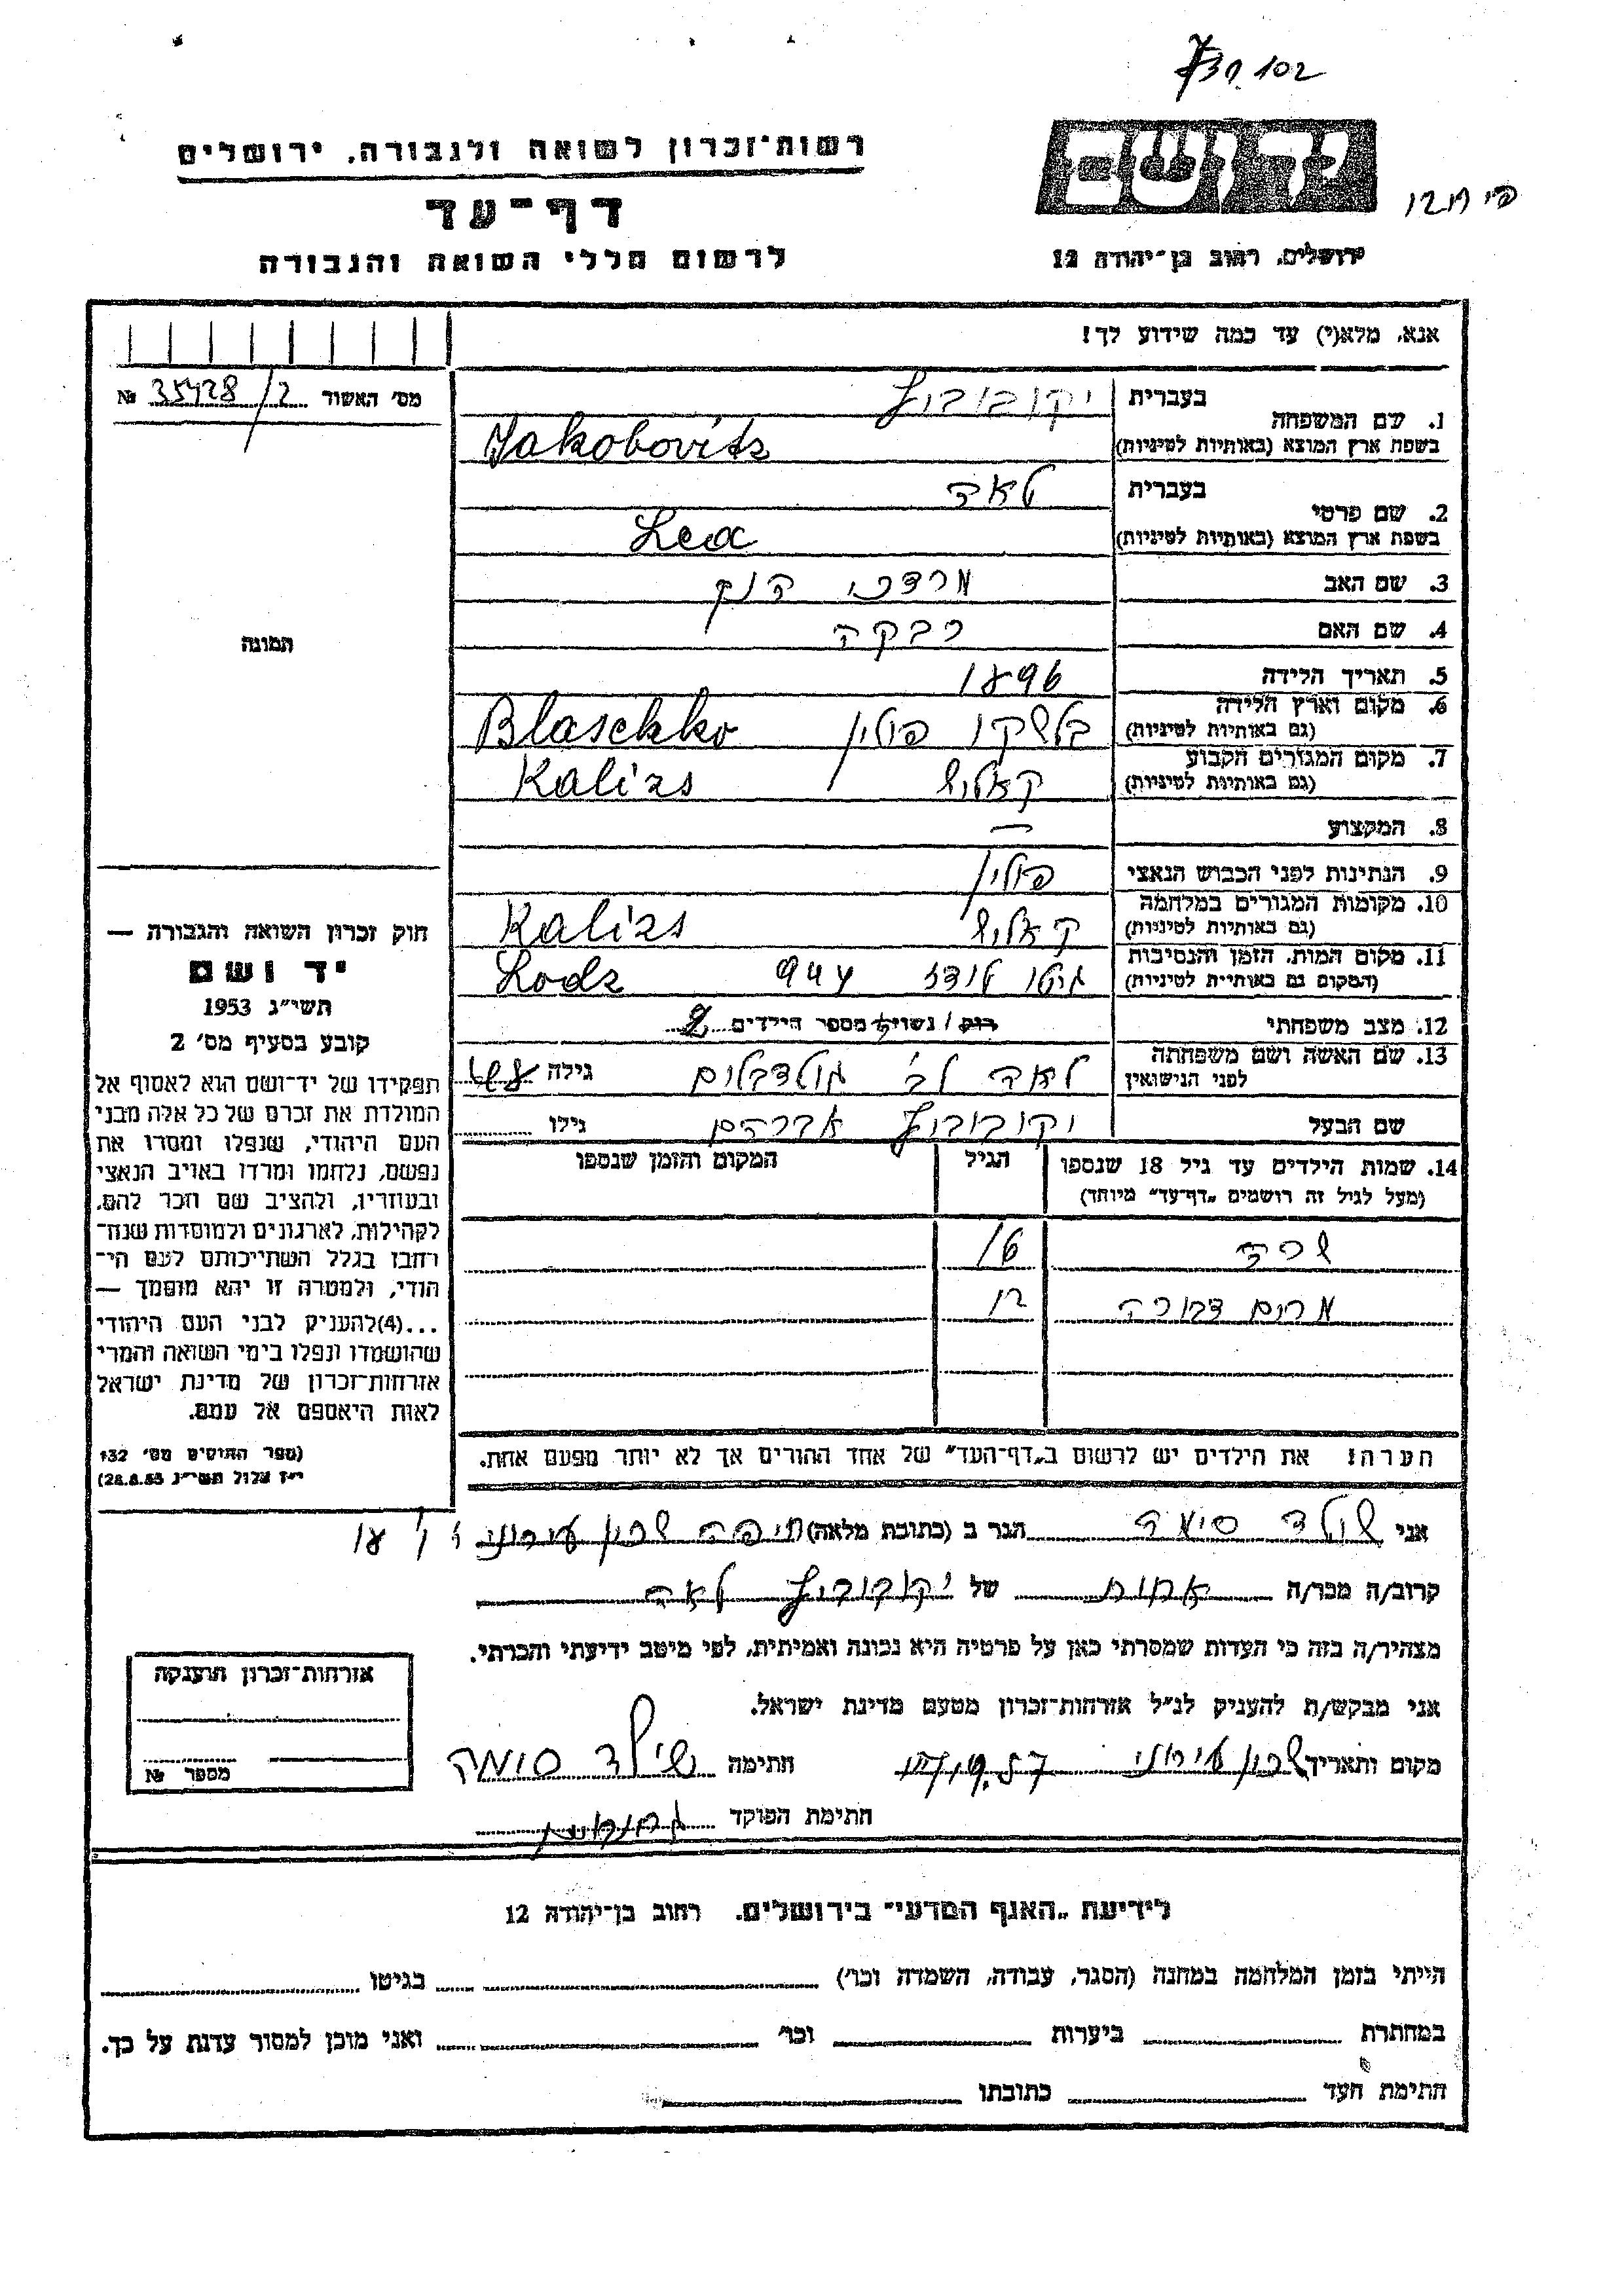 רשות־זכרון לשואה ולגבורה, ירושלים
דף־עד
לרשום חללי השואה והגבורה
יד ושם
ירושלים, רחוב בן־יהודה 12
אנא, מלא(י) עד כמה שידוע לך!
מס׳ האשור 35428/2 №
1. שם המשפחה
בעברית יקובוביץ
בשפת ארץ המוצא (באותיות לטיניות) Jakobovits
2. שם פרטי
בעברית לאה
בשפת ארץ המוצא (באותיות לטיניות) Lea
3. שם האב מרדכי
4. שם האם רבקה
5. תאריך הלידה 1896
6. מקום וארץ הלידה
(גם באותיות לטיניות) בלשקו פולין Blaschko
7. מקום המגורים הקבוע
(גם באותיות לטיניות) קאליש Kalizs
8. המקצוע —
9. הנתינות לפני הכבוש הנאצי פולין
10. מקומות המגורים במלחמה
(גם באותיות לטיניות) קאליש Kalizs
11. מקום המות, הזמן והנסיבות
(המקום גם באותיות לטיניות) גיטו לודז 944 Lodz
12. מצב משפחתי רוק / נשוי מספר הילדים 2
13. שם האשה ושם משפחתה
לפני הנישואין לאה לב׳ גולדבלום גילה
שם הבעל יקובוביץ אברהם גילו
14. שמות הילדים עד גיל 18 שנספו
(מעל לגיל זה רושמים „דף־עד״ מיוחד)
הגיל
המקום והזמן שנספו
שרה 16
מרים דבורה 12
הערה! את הילדים יש לרשום ב„דף־העד״ של אחד ההורים אך לא יותר מפעם אחת.
תמונה
חוק זכרון השואה והגבורה —
יד ושם
תשי״ג 1953
קובע בסעיף מס׳ 2
תפקידו של יד־ושם הוא לאסוף אל
המולדת את זכרם של כל אלה מבני
העם היהודי, שנפלו ומסרו את
נפשם, נלחמו ומרדו באויב הנאצי
ובעוזריו, ולהציב שם וזכר להם,
לקהילות, לארגונים ולמוסדות שנח־
רחבו בגלל השתייכותם לעם הי־
הודי, ולמטרה זו יהא מוסמך —
...(4)להעניק לבני העם היהודי
שהושמדו ונפלו בימי השואה והמרי
אזרחות־זכרון של מדינת ישראל
לאות היאספם אל עמם.
(ספר החוקים מס׳ 132
י״ז אלול תשי״ג 28.8.53)
אני שילד סימה הגר ב (כתובת מלאה) חיפה שכון עירוני
קרוב/ה מכר/ה אחות של יקובוביץ לאה
מצהיר/ה בזה כי העדות שמסרתי כאן על פרטיה היא נכונה ואמיתית, לפי מיטב ידיעתי והכרתי.
אני מבקש/ת להעניק לנ״ל אזרחות־זכרון מטעם מדינת ישראל.
מקום ותאריך שכון עירוני חתימה שילד סימה
חתימת הפוקד
אזרחות־זכרון הוענקה
מספר №
לידיעת „האגף המדעי״ בירושלים, רחוב בן־יהודה 12
הייתי בזמן המלחמה במחנה (הסגר, עבודה, השמדה וכו׳) בגיטו
במחתרת ביערות וכו׳ ואני מוכן למסור עדות על כך.
חתימת העד כתובתו